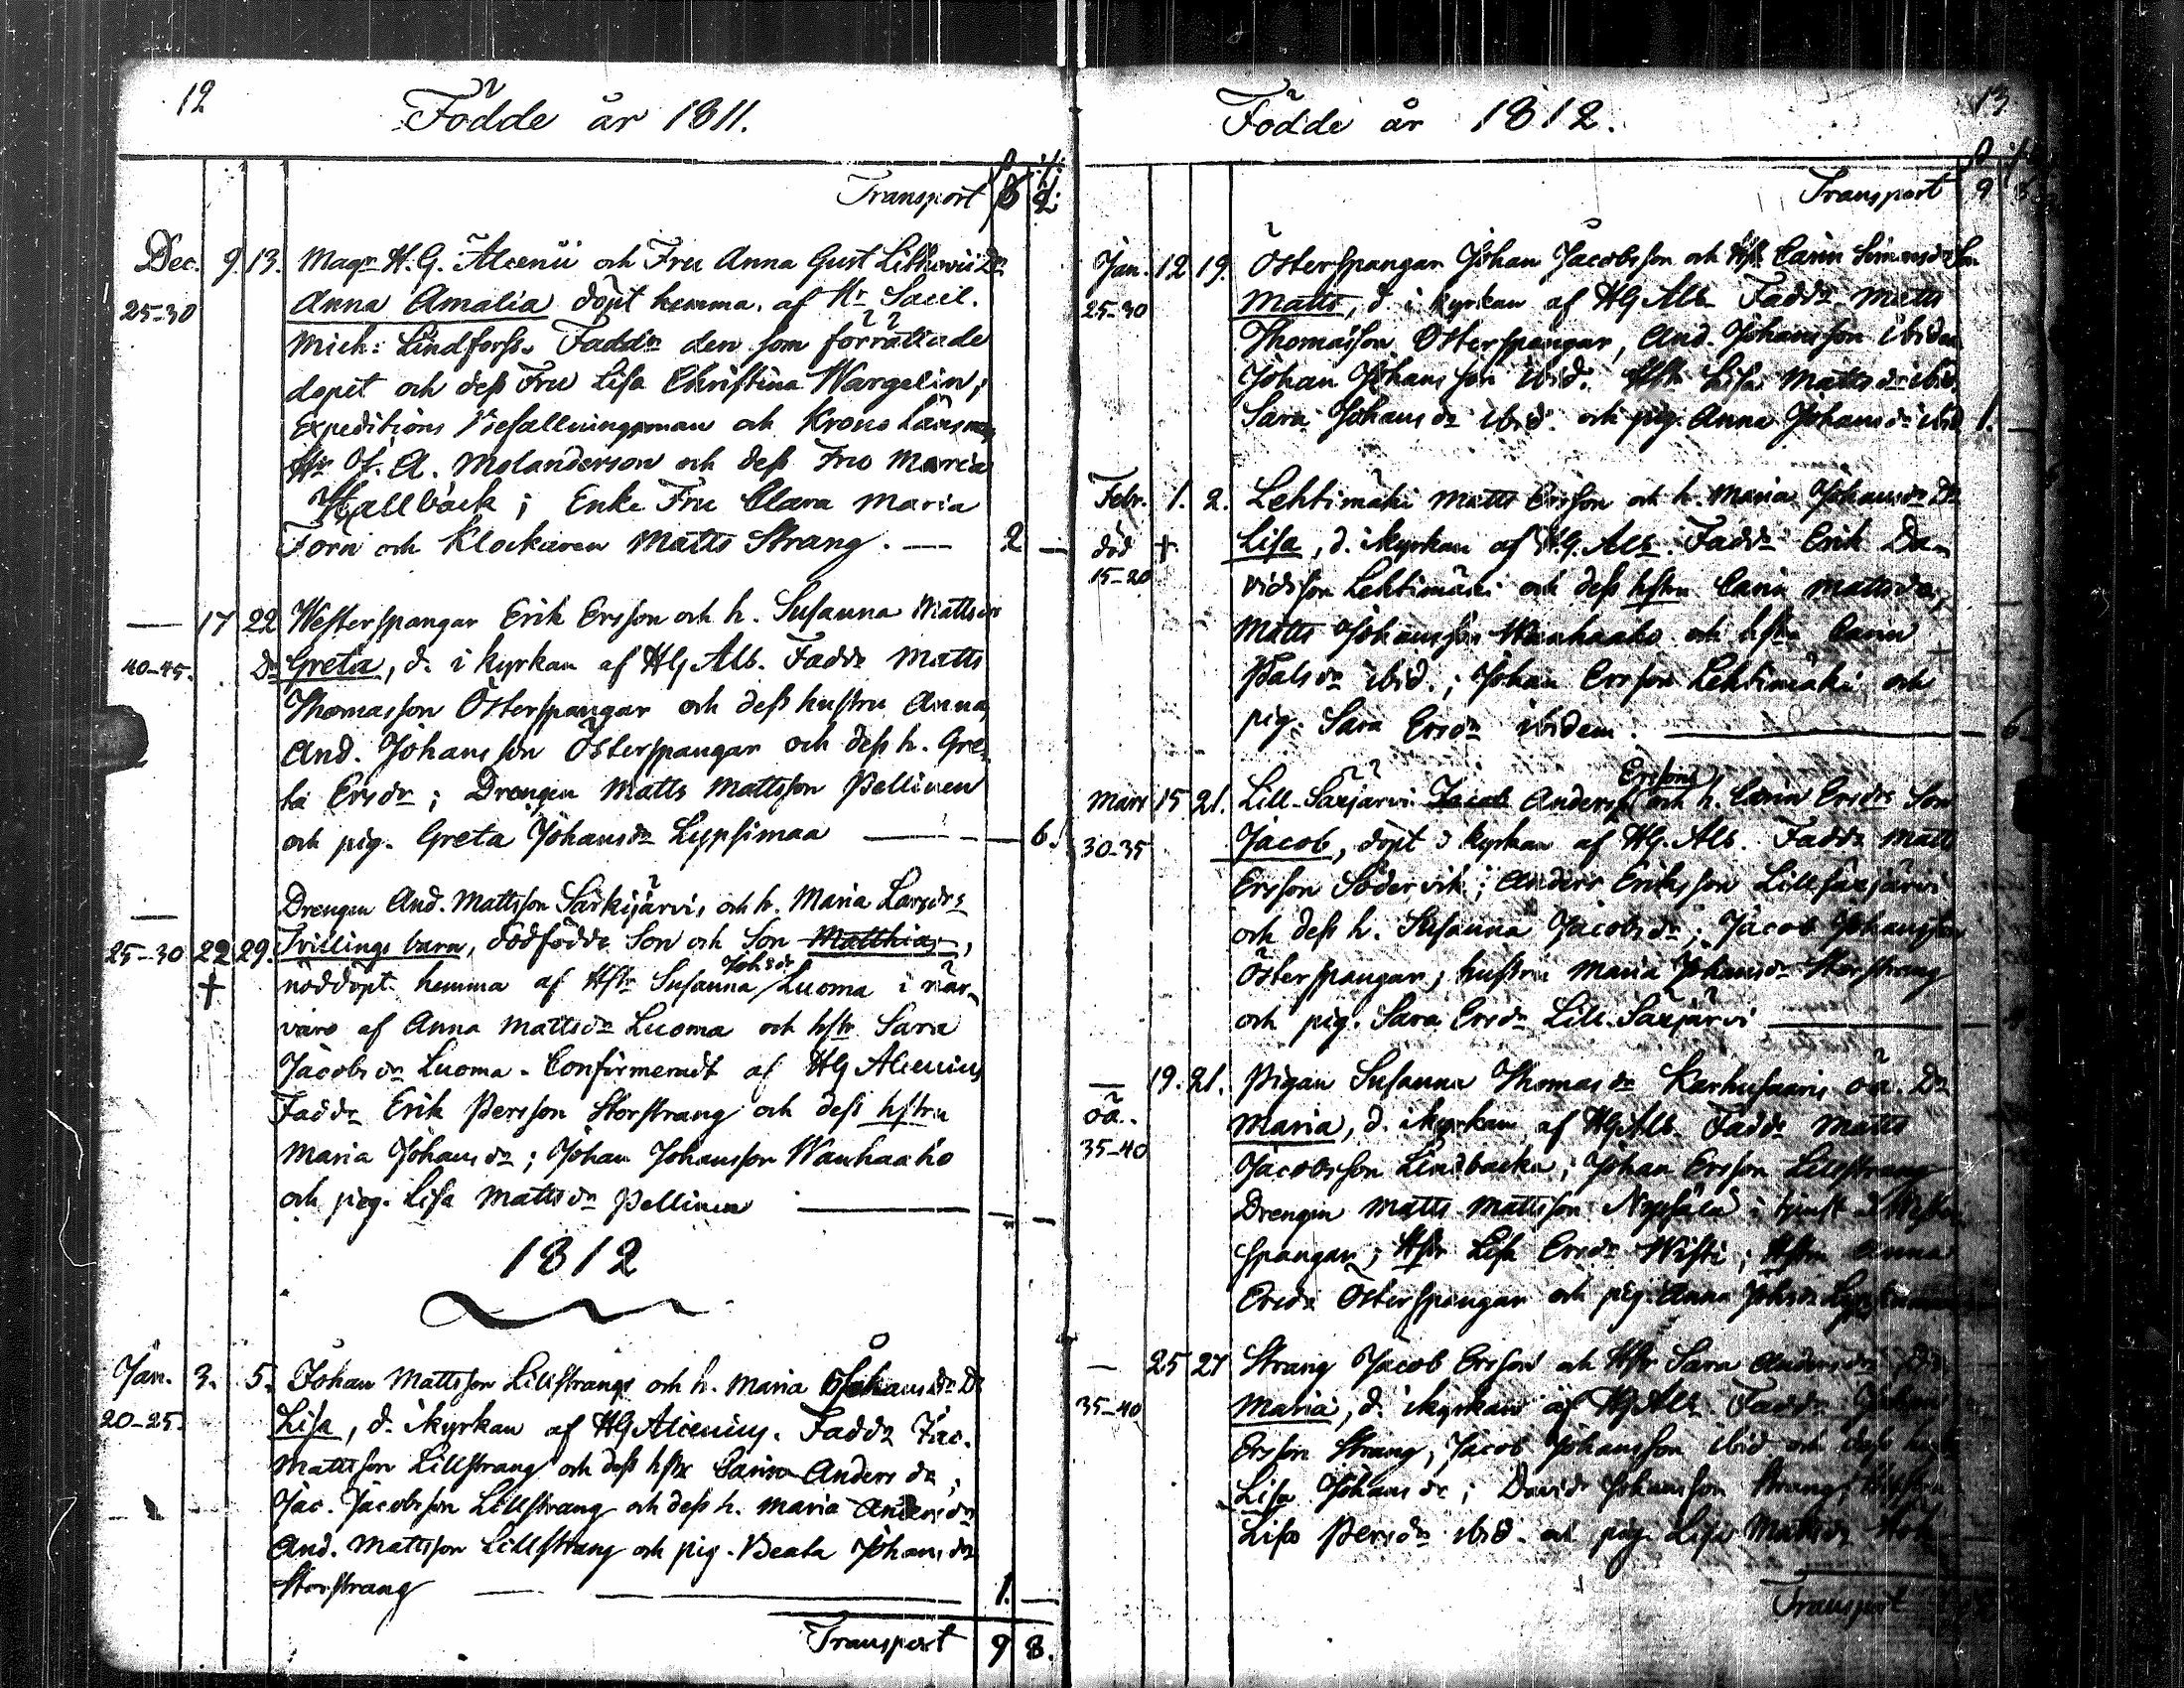 12
Födde år 1811.
Transport 6 2.
Dec. 9. 13. Magr H. G. Alcenii och Fru Anna Gust Lithovii Dr
25-30 Anna Amalia döpt hemma. af Hr Sacel.
Mich: Lindforss. Faddr den som förrättade
dopet och dess Fru Lisa Christina Wargelin;
Expeditions Befallningsman och Krono Länsman
Hr J. A. Molanderson och dess Fru Maria
Hallbäck; Enke Fru Clara Maria
Forn och Klockaren Matts Strang. — 2 —
— 17 22 Westerspangar Erik Ersson och h. Susanna Mattsdr
40-45. Dr Greta, d. i kyrkan af HG Alb. Faddr Matts
Thomasson Österspangar och dess hustru Anna,
And. Johansson Österspangar och dess h. Gre-
ta Ersdr; Drengen Matts Mattsson Pellinen
och pig. Greta Johansdr Lypsimaa — — 6.
— Drengen And. Mattsson Särkijärvis och h. Maria Larsdrs
25-30 22 29. Tvillings barn, dödfödde Son och Son Matthias,
† nöddöpt hemma af Hstr Susanna Johsdr Luoma i när-
varo af Anna Mattsdr Luoma och hstr Sara
Jacobsdr Luoma. Confirmeradt af HG Alcenius
Faddr Erik Persson Storstrang och dess hstru
Maria Johansdr; Johan Johansson Wanhaaho
och pig. Lisa Mattsdr Pellinen — — —
1812
Jan. 3. 5. Johan Mattsson Lillstrangs och h. Maria Johansdr Dr
20-25. Lisa, d. i kyrkan af HG Alcenius. Faddr Jac.
Mattsson Lillstrang och dess hstr Carin Andersdr;
Jac. Jacobsson Lillstrang och dess h. Maria Andersdr
And. Mattsson Lillstrang och pig. Beata Johansdr
Storstrang — 1. —
Transport 9 8.
13
Födde år 1812.
Transport 9 8
Jan. 12 19. Österspangar Johan Jacobsson och Hstr Carin Simonsdr Son
25-30 Matts, d. i kyrkan af HG Alb. Faddr Matts
Thomasson Österspangar, And. Johansson ibidem
Johan Johansson ibid. Hstr Lisa Mattsdr ibid
Sara Johansdr ibid. och pig. Anna Johansdr ibid 1. —
Febr. 1. 2. Lehtimäki Matts Ersson och h. Maria Johansdr Dr
död † Lisa, d. i kyrkan af H.G. Alb. Faddr Erik Da-
15-20 vidsson Lehtimäki och dess hstru Carin Mattsdr;
Matts Johansson Wanhaaho och hstr Carin
Palsdr ibid.; Johan Ersson Lehtimäki och
pig. Sara Ersdr ibidem. — — 6
Mars 15 21. Lill-Säxjärvi Jacob Anders Erssons och h. Carin Ersdrs Son
30-35 Jacob, döpt i kyrkan af HG. Alb. Faddr Matts
Ersson Södervik; Anders Eriksson Lillsäxjärvi
och dess h. Susanna Jacobsdr; Jacob Johansson
Österspangar; hustru Maria Johansdr Storstrang
och pig. Sara Ersdr Lill-Säxjärvi —
— 19. 21. Pigan Susanna Thomasdr Karhusaaris oä. Dr
oä. Maria, d. i kyrkan af HG Alb. Faddr Matts
35-40 Jacobsson Lindbacka; Johan Ersson Lillstrang
Drengen Matts Mattsson i tjenst å Wester-
spangar; Hstr Lisa Ersdr Wisti; Hstru Anna
Ersdr Österspangar och pig. Anna Johsdr
— 25 27 Strang Jacob Ersson och Hstr Sara Andersdr Dr
35-40 Maria, d. i kyrkan af HG Alb. Faddr Johan
Ersson Strang, Jacob Johansson ibid och dess hustru
Lisa Johansdr; David Johansson Strang, Hustru
Lisa Persdr ibid. och pig. Lisa Mattsdr
Transport